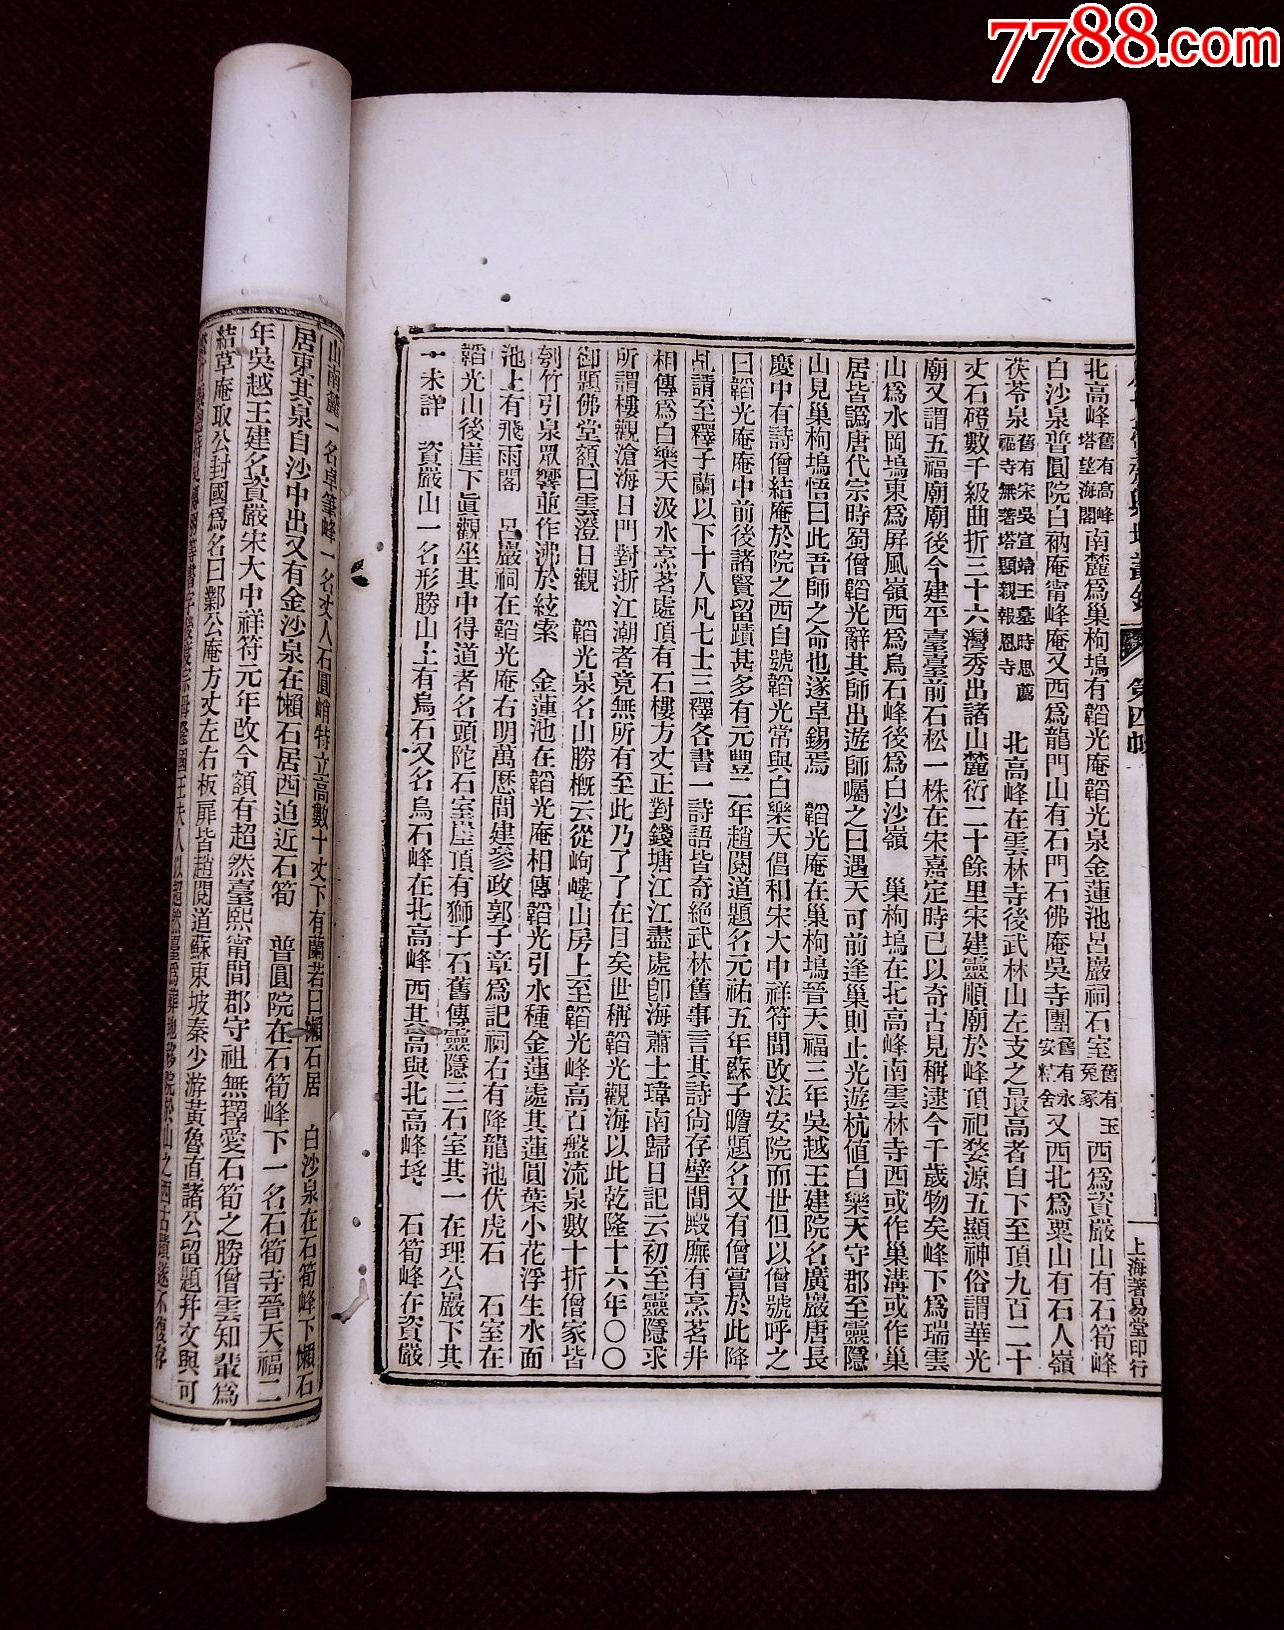 7788.com
第四帙
上海著易堂印行
北高峰舊有高峰塔望海閣南麓爲巢枸塢有韜光庵韜光泉金蓮池呂巖祠石室舊有玉兔泉西爲資嚴山有石筍峰
白沙泉普圓院白衲庵甯峰庵又西爲龍門山有石門石佛庵吳寺團舊有永安精舍又西北爲栗山有石人嶺
茯苓泉舊有宋吳宜靖王墓時思薦福寺無著塔顯親報恩寺 北高峰在雲林寺後武林山左支之最高者自下至頂九百二十
丈石磴數千級曲折三十六灣秀出諸山麓衍二十餘里宋建靈順廟於峰頂祀婺源五顯神俗謂華光
廟又謂五福廟廟後今建平臺臺前石松一株在宋嘉定時已以奇古見稱逮今千歲物矣峰下爲瑞雲
山爲水岡塢東爲屏風嶺西爲烏石峰後爲白沙嶺 巢枸塢在北高峰南雲林寺西或作巢溝或作巢
居皆譌唐代宗時蜀僧韜光辭其師出遊師囑之曰遇天可前逢巢則止光遊杭値白樂天守郡至靈隱
山見巢枸塢悟曰此吾師之命也遂卓錫焉 韜光庵在巢枸塢晉天福三年吳越王建院名廣嚴唐長
慶中有詩僧結庵於院之西自號韜光常與白樂天倡和宋大中祥符間改法安院而世但以僧號呼之
曰韜光庵庵中前後諸賢留蹟甚多有元豐二年趙閱道題名元祐五年蘇子瞻題名又有僧嘗於此降
乩請至釋子蘭以下十人凡七士三釋各書一詩語皆奇絶武林舊事言其詩尙存壁間殿廡有烹茗井
相傳爲白樂天汲水烹茗處頂有石樓方丈正對錢塘江江盡處卽海蕭士瑋南歸日記云初至靈隱求
所謂樓觀滄海日門對浙江潮者竟無所有至此乃了了在目矣世稱韜光觀海以此乾隆十六年〇〇
御題佛堂額曰雲澄日觀 韜光泉名山勝槪云從岣嶁山房上至韜光峰高百盤流泉數十折僧家皆
刳竹引泉眾響並作沸於絃索 金蓮池在韜光庵相傳韜光引水種金蓮處其蓮圓葉小花浮生水面
池上有飛雨閣 呂巖祠在韜光庵右明萬歷間建參政郭子章爲記祠右有降龍池伏虎石 石室在
韜光山後崖下眞觀坐其中得道者名頭陀石室崖頂有獅子石舊傳靈隱三石室其一在理公巖下其
一未詳 資嚴山一名形勝山上有烏石又名烏石峰在北高峰西其高與北高峰埒 石筍峰在資嚴
山南麓一名卓筆峰一名丈人石圓峭特立高數十丈下有蘭若曰懶石居 白沙泉在石筍峰下懶石
居東其泉自沙中出又有金沙泉在懶石居西迫近石筍 普圓院在石筍峰下一名石筍寺晉天福二
年吳越王建名資嚴宋大中祥符元年改今額有超然臺熙甯間郡守祖無擇愛石筍之勝僧雲知輩爲
結草庵取公封國爲名曰鄴公庵方丈左右板扉皆趙閱道蘇東坡秦少游黃魯直諸公留題幷文與可